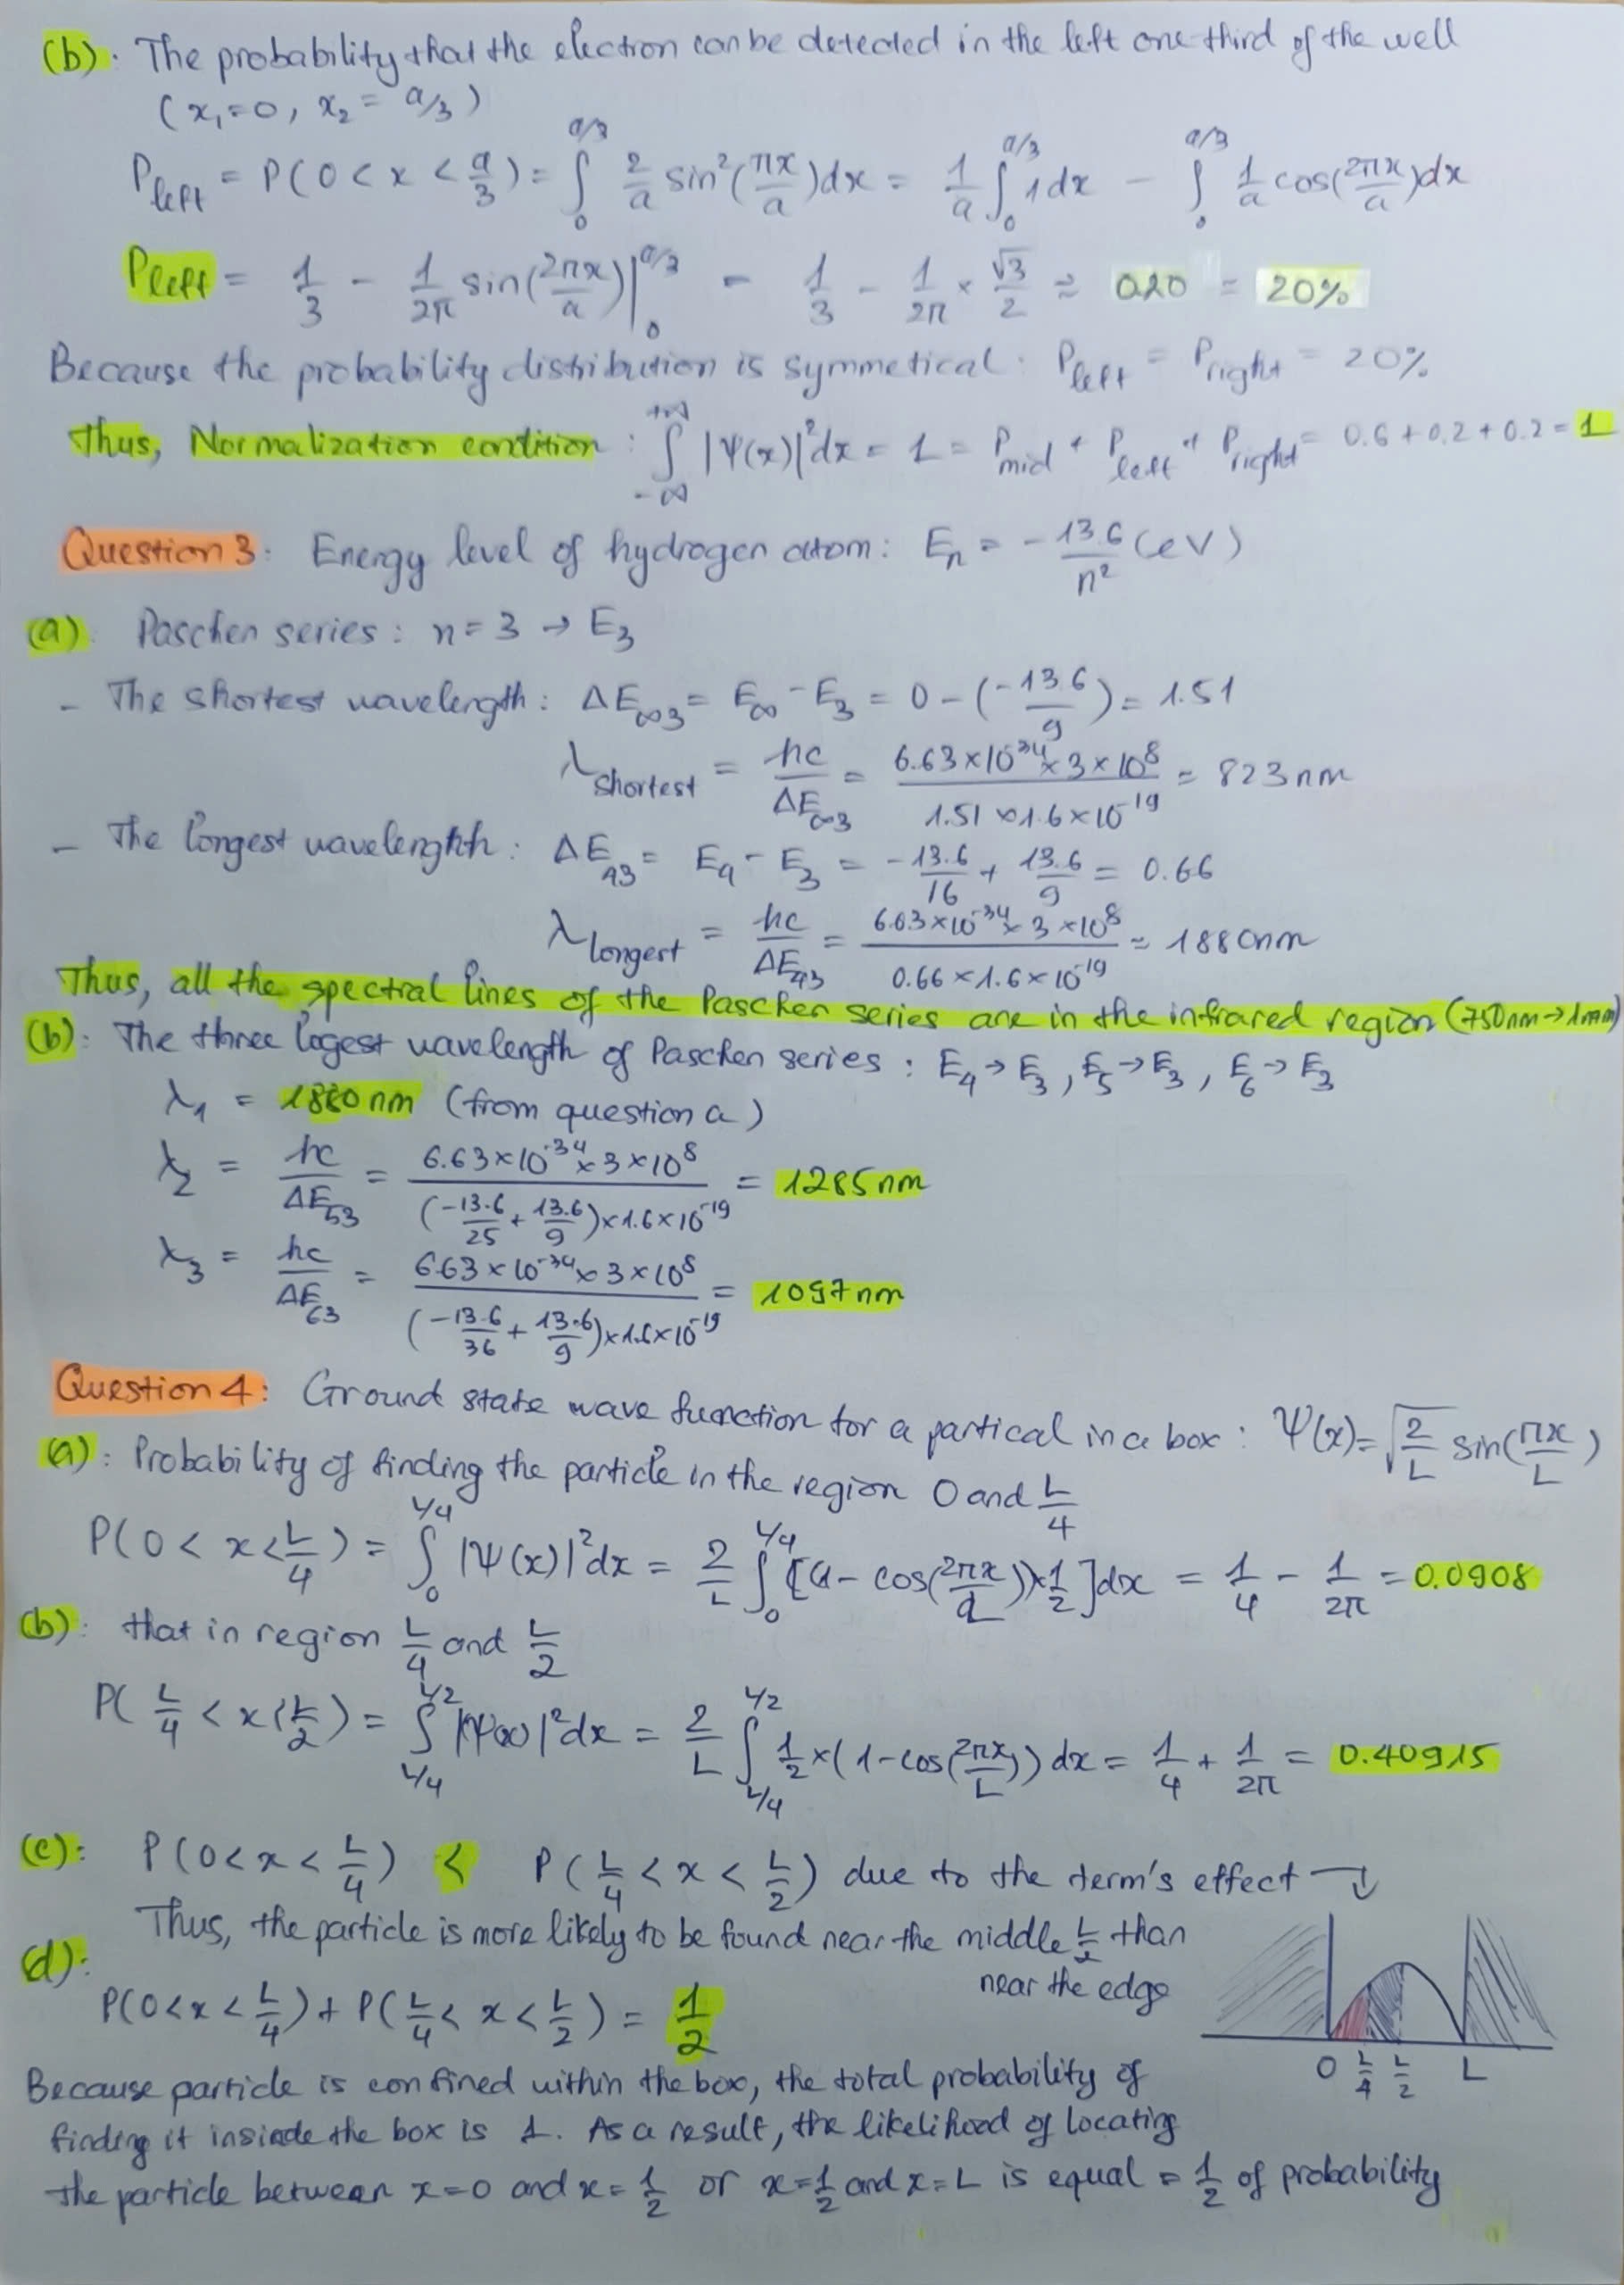 (b). The probability that the electron can be detected in the left one-third of the well
(x₁=0, x₂= a/3)
P_left = P(0<x<a/3) = ∫₀^{a/3} 2/a sin²(πx/a)dx = 1/a ∫₀^{a/3} 1dx - ∫₀^{a/3} 1/a cos(2πx/a)dx
P_left = 1/3 - 1/2π sin(2πx/a)|₀^{a/3} = 1/3 - 1/2π × √3/2 ≈ 0.20 = 20%
Because the probability distribution is symmetical: P_left = P_right = 20%
Thus, Normalization condition: ∫_{-∞}^{+∞} |Ψ(x)|²dx = 1 = P_mid + P_left + P_right = 0.6+0.2+0.2=1
Question 3: Energy level of hydrogen atom: E_n = -13.6/n² (eV)
(a) Paschen series: n=3 → E₃
- The shortest wavelength: ΔE_∞3 = E_∞ - E₃ = 0-(-13.6/9) = 1.51
λ_shortest = hc/ΔE_∞3 = 6.63×10⁻³⁴×3×10⁸ / 1.51×1.6×10⁻¹⁹ = 823nm
- The longest wavelenghth: ΔE₄₃ = E₄ - E₃ = -13.6/16 + 13.6/9 = 0.66
λ_longest = hc/ΔE₄₃ = 6.63×10⁻³⁴×3×10⁸ / 0.66×1.6×10⁻¹⁹ = 1880nm
Thus, all the spectral lines of the Paschen series are in the infrared region (750nm→1mm)
(b): The three logest wavelength of Paschen series: E₄→E₃, E₅→E₃, E₆→E₃
λ₁ = 1880nm (from question a)
λ₂ = hc/ΔE₅₃ = 6.63×10⁻³⁴×3×10⁸ / (-13.6/25 + 13.6/9)×1.6×10⁻¹⁹ = 1285nm
λ₃ = hc/ΔE₆₃ = 6.63×10⁻³⁴×3×10⁸ / (-13.6/36 + 13.6/9)×1.6×10⁻¹⁹ = 1097nm
Question 4: Ground state wave function for a partical in a box: Ψ(x)=√(2/L) sin(πx/L)
(a): Probability of finding the particle in the region 0 and L/4
P(0<x<L/4) = ∫₀^{L/4} |Ψ(x)|²dx = 2/L ∫₀^{L/4} [(1-cos(2πx/L))×1/2]dx = 1/4 - 1/2π = 0.0908
(b): that in region L/4 and L/2
P(L/4<x<L/2) = ∫_{L/4}^{L/2} |Ψ(x)|²dx = 2/L ∫_{L/4}^{L/2} 1/2×(1-cos(2πx/L))dx = 1/4 + 1/2π = 0.40915
(c): P(0<x<L/4) < P(L/4<x<L/2) due to the term's effect
Thus, the particle is more likely to be found near the middle L/2 than
near the edge
(d):
P(0<x<L/4)+P(L/4<x<L/2) = 1/2
0 L/4 L/2 L
Because particle is confined within the box, the total probability of
finding it insiade the box is 1. As a result, the likelihood of locating
the particle between x=0 and x=1/2 or x=1/2 and x=L is equal = 1/2 of probability